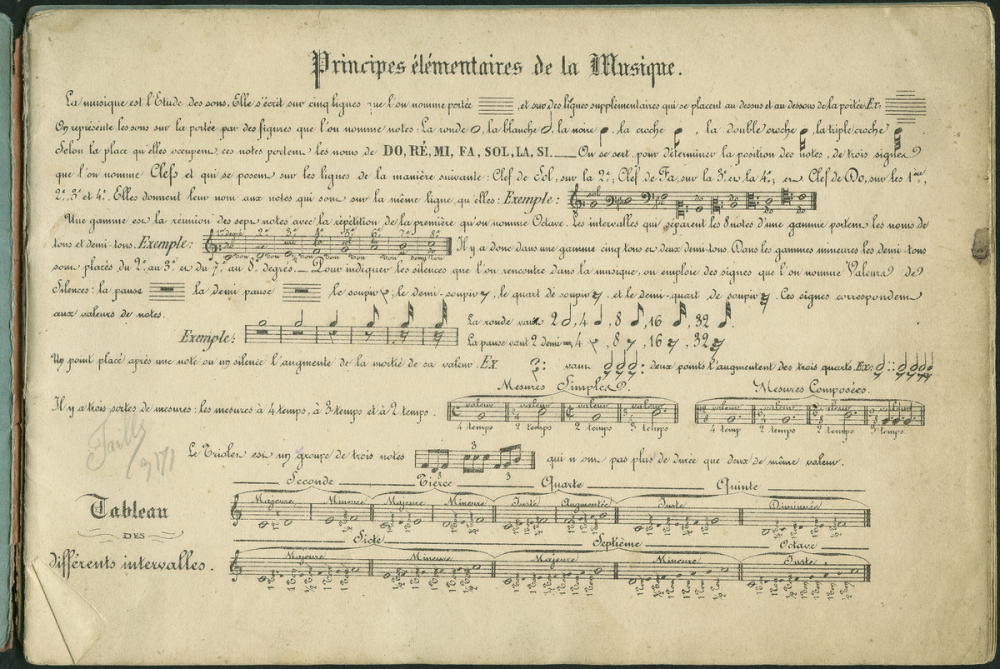 Principes élémentaires de la Musique.
La musique est l'Etude des sons. Elle s'écrit sur cinq lignes que l'on nomme portée , et sur des lignes supplémentaires qui se placent au dessus et au dessous de la portée Ex:
On représente les sons sur la portée par des figures que l'on nomme notes: La ronde , la blanche , la noire , la croche , la double croche , la triple croche
Selon la place qu'elles occupent ces notes portent les noms de DO, RÉ, MI, FA, SOL, LA, SI. — On se sert pour déterminer la position des notes, de trois signes
que l'on nomme Clefs et qui se posent sur les lignes de la manière suivante: Clef de Sol, sur la 2e; Clef de Fa, sur la 3e et la 4e; et Clef de Do, sur les 1ère,
2e, 3e et 4e. Elles donnent leur nom aux notes qui sont sur la même ligne qu'elles: Exemple:
Une gamme est la réunion des sept notes avec la répétition de la première qu'on nomme Octave. Les intervalles qui séparent les 8 notes d'une gamme portent les noms de
tons et demi-tons. Exemple: Il y a donc dans une gamme cinq tons et deux demi-tons. Dans les gammes mineures les demi-tons
sont placés du 2e au 3e et du 7e au 8e degrés. — Pour indiquer les silences que l'on rencontre dans la musique, on emploie des signes que l'on nomme Valeurs de
Silences: la pause la demi pause le soupir , le demi-soupir , le quart de soupir , et le demi-quart de soupir . Ces signes correspondent
aux valeurs de notes.
Exemple:
La ronde vaut 2 , 4 , 8 , 16 , 32 .
La pause vaut 2 demi , 4 , 8 , 16 , 32
Un point placé après une note ou un silence l'augmente de la moitié de sa valeur Ex vaut : deux points l'augmentent des trois quarts. Ex:
Mesures Simples. Mesures Composées.
Il y a trois sortes de mesures: les mesures à 4 temps, à 3 temps et à 2 temps.
valeur valeur valeur valeur valeur valeur valeur
4 temps 2 temps 2 temps 3 temps 4 temps 2 temps 2 temps 3 temps
Le Triolet est un groupe de trois notes 3 3 3 qui n'ont pas plus de durée que deux de même valeur.
Tableau
DES
différents intervalles.
Seconde Tierce Quarte Quinte
Majeure Mineure Majeure Mineure Juste Augmentée Juste Diminuée
Sixte Septième Octave
Majeure Mineure Majeure Mineure Juste